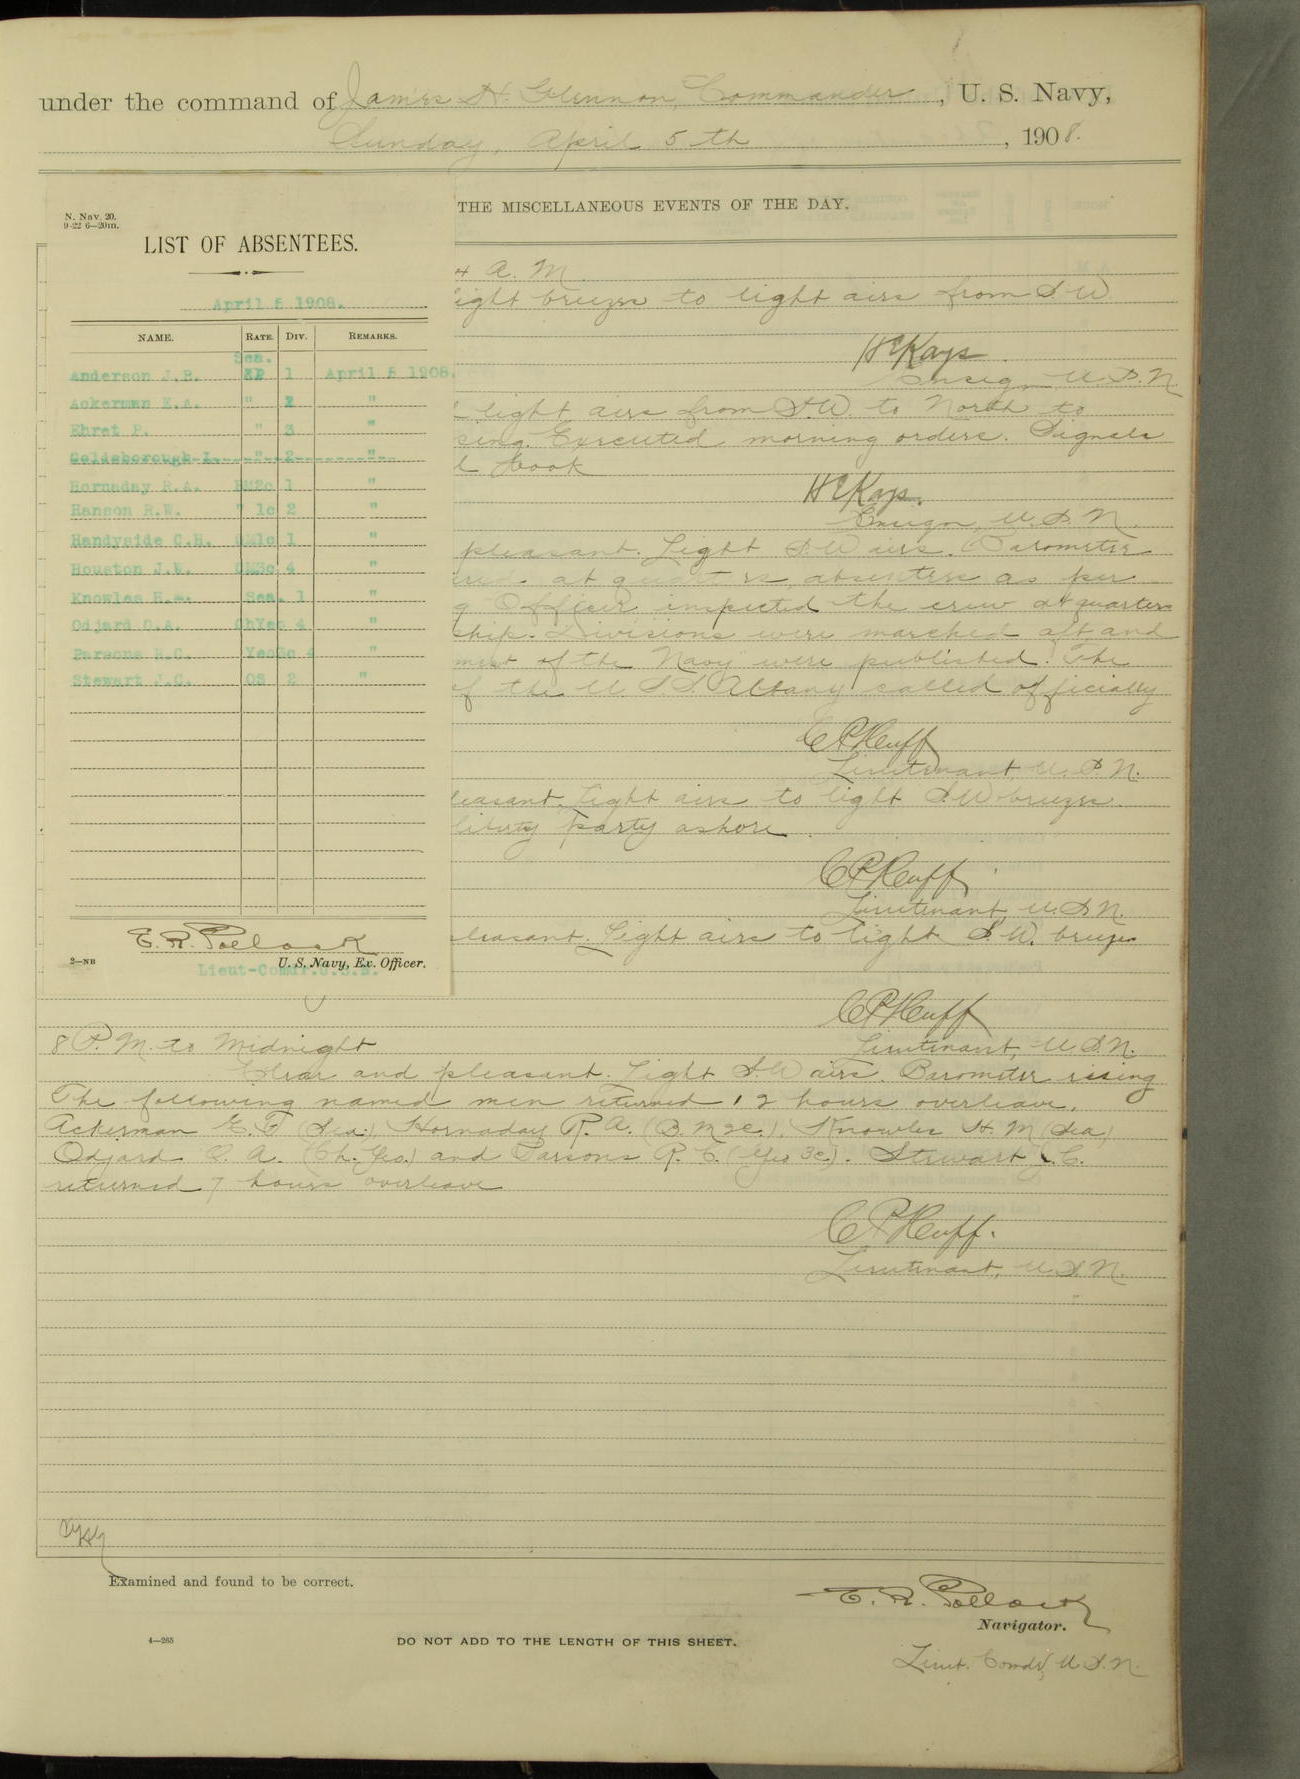 under the command of James H. Glennon, Commander, U. S. Navy,
Sunday, April 5th, 1908.
THE MISCELLANEOUS EVENTS OF THE DAY.
N. Nav. 20.
9-22 6—20m.
LIST OF ABSENTEES.
April 5 1908.
NAME. RATE. DIV. REMARKS.
Sea.
Anderson J.B. 1 April 5 1908.
Ackerman E.A. " 2 "
Ehret P. " 3 "
Goldsborough I. " 2 "
Hornaday R.A. BM2c 1 "
Hanson R.W. " 1c 2 "
Handyside C.H. GM1c 1 "
Houston J.W. GM3c 4 "
Knowles H.m. Sea. 1 "
Odjard O.A. ChYeo 4 "
Parsons R.C. Yeo3c 4 "
Stewart J.C. OS 2 "
E. R. Pollock
2—NB U. S. Navy, Ex. Officer.
Lieut-Comdr.U.S.N.
4 A. M.
light breezes to light airs from S.W
H E Kays
Ensign U.S.N.
light airs from S.W. to North to
sing. Executed morning orders. Signals
l Hook
H E Kays.
Ensign, U.S.N.
pleasant. Light S.W airs. Barometer
at quarters, absentees as per
g Officer inspected the crew at quarters
ship. Divisions were marched aft and
ment of the Navy were published. The
of the U.S.S. Albany called officially
C P Huff
Lieutenant, U.S.N.
leasant. Light airs to light S.W breezes.
liberty party ashore.
C P Huff
Lieutenant, U.S.N.
pleasant. Light airs to light S.W. breezes
C P Huff
Lieutenant, U.S.N.
8 P.M. to Midnight
Clear and pleasant. Light S.W airs. Barometer rising
The following named men returned 12 hours overleave.
Ackerman E. F (Sea.), Hornaday R. A. (B.M2c.), Knowles H. M (Sea)
Odjard O. A. (Ch. Yeo.) and Parsons R. C. (Yeo 3c). Stewart J.C.
returned 7 hours overleave
C P Huff.
Lieutenant, U.S.N.
Examined and found to be correct.
E. R. Pollock
Navigator.
4—265 DO NOT ADD TO THE LENGTH OF THIS SHEET.
Lieut. Comdr, U.S.N.